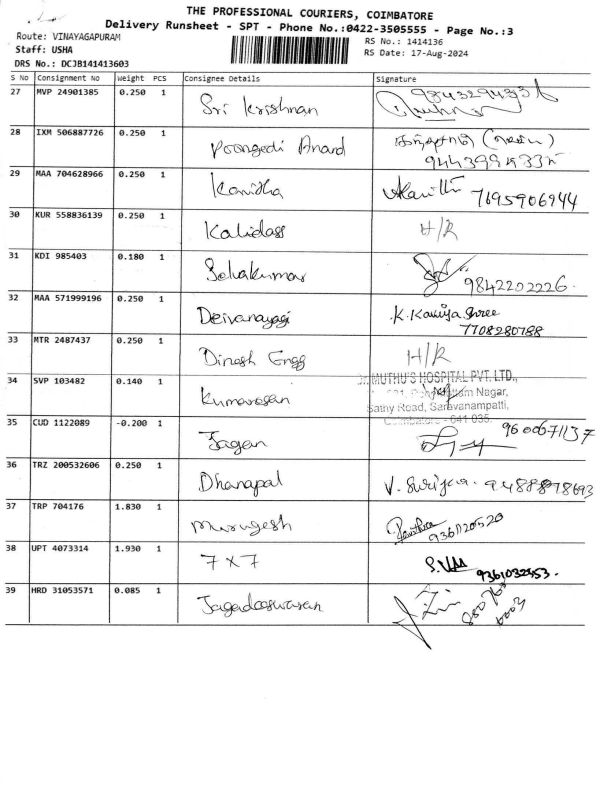 THE PROFESSIONAL COURIERS, COIMBATORE
Delivery Runsheet - SPT - Phone No.:0422-3505555 - Page No.:3
Route: VINAYAGAPURAM
Staff: USHA
DRS No.: DCJB141413603
RS No.: 1414136
RS Date: 17-Aug-2024
S No Consignment No Weight PCS Consignee Details Signature
27 MVP 24901385 0.250 1 Sri Krishnan
28 IXM 506887726 0.250 1 Poongodi Anand
29 MAA 704628966 0.250 1 Kavitha 7695906944
30 KUR 558836139 0.250 1 Kalidass H/R
31 KDI 985403 0.180 1 Selvakumar 9842202226.
32 MAA 571999196 0.250 1 Deivanayagi K. Kaviya Shree
7708280788
33 MTR 2487437 0.250 1 Dinesh Engg H/R
34 SVP 103482 0.140 1 Kumaresan MUTHU'S HOSPITAL PVT. LTD.,
Nagar,
Sathy Road, Saravanampatti,
Coimbatore - 641 035.
35 CUD 1122089 -0.200 1 Jagan 9600671137
36 TRZ 200532606 0.250 1 Dhanapal V.
37 TRP 704176 1.830 1 Murugesh Pavithra
9361120520
38 UPT 4073314 1.930 1 7 x 7
9361032453.
39 HRD 31053571 0.085 1 Jagadeeswaran